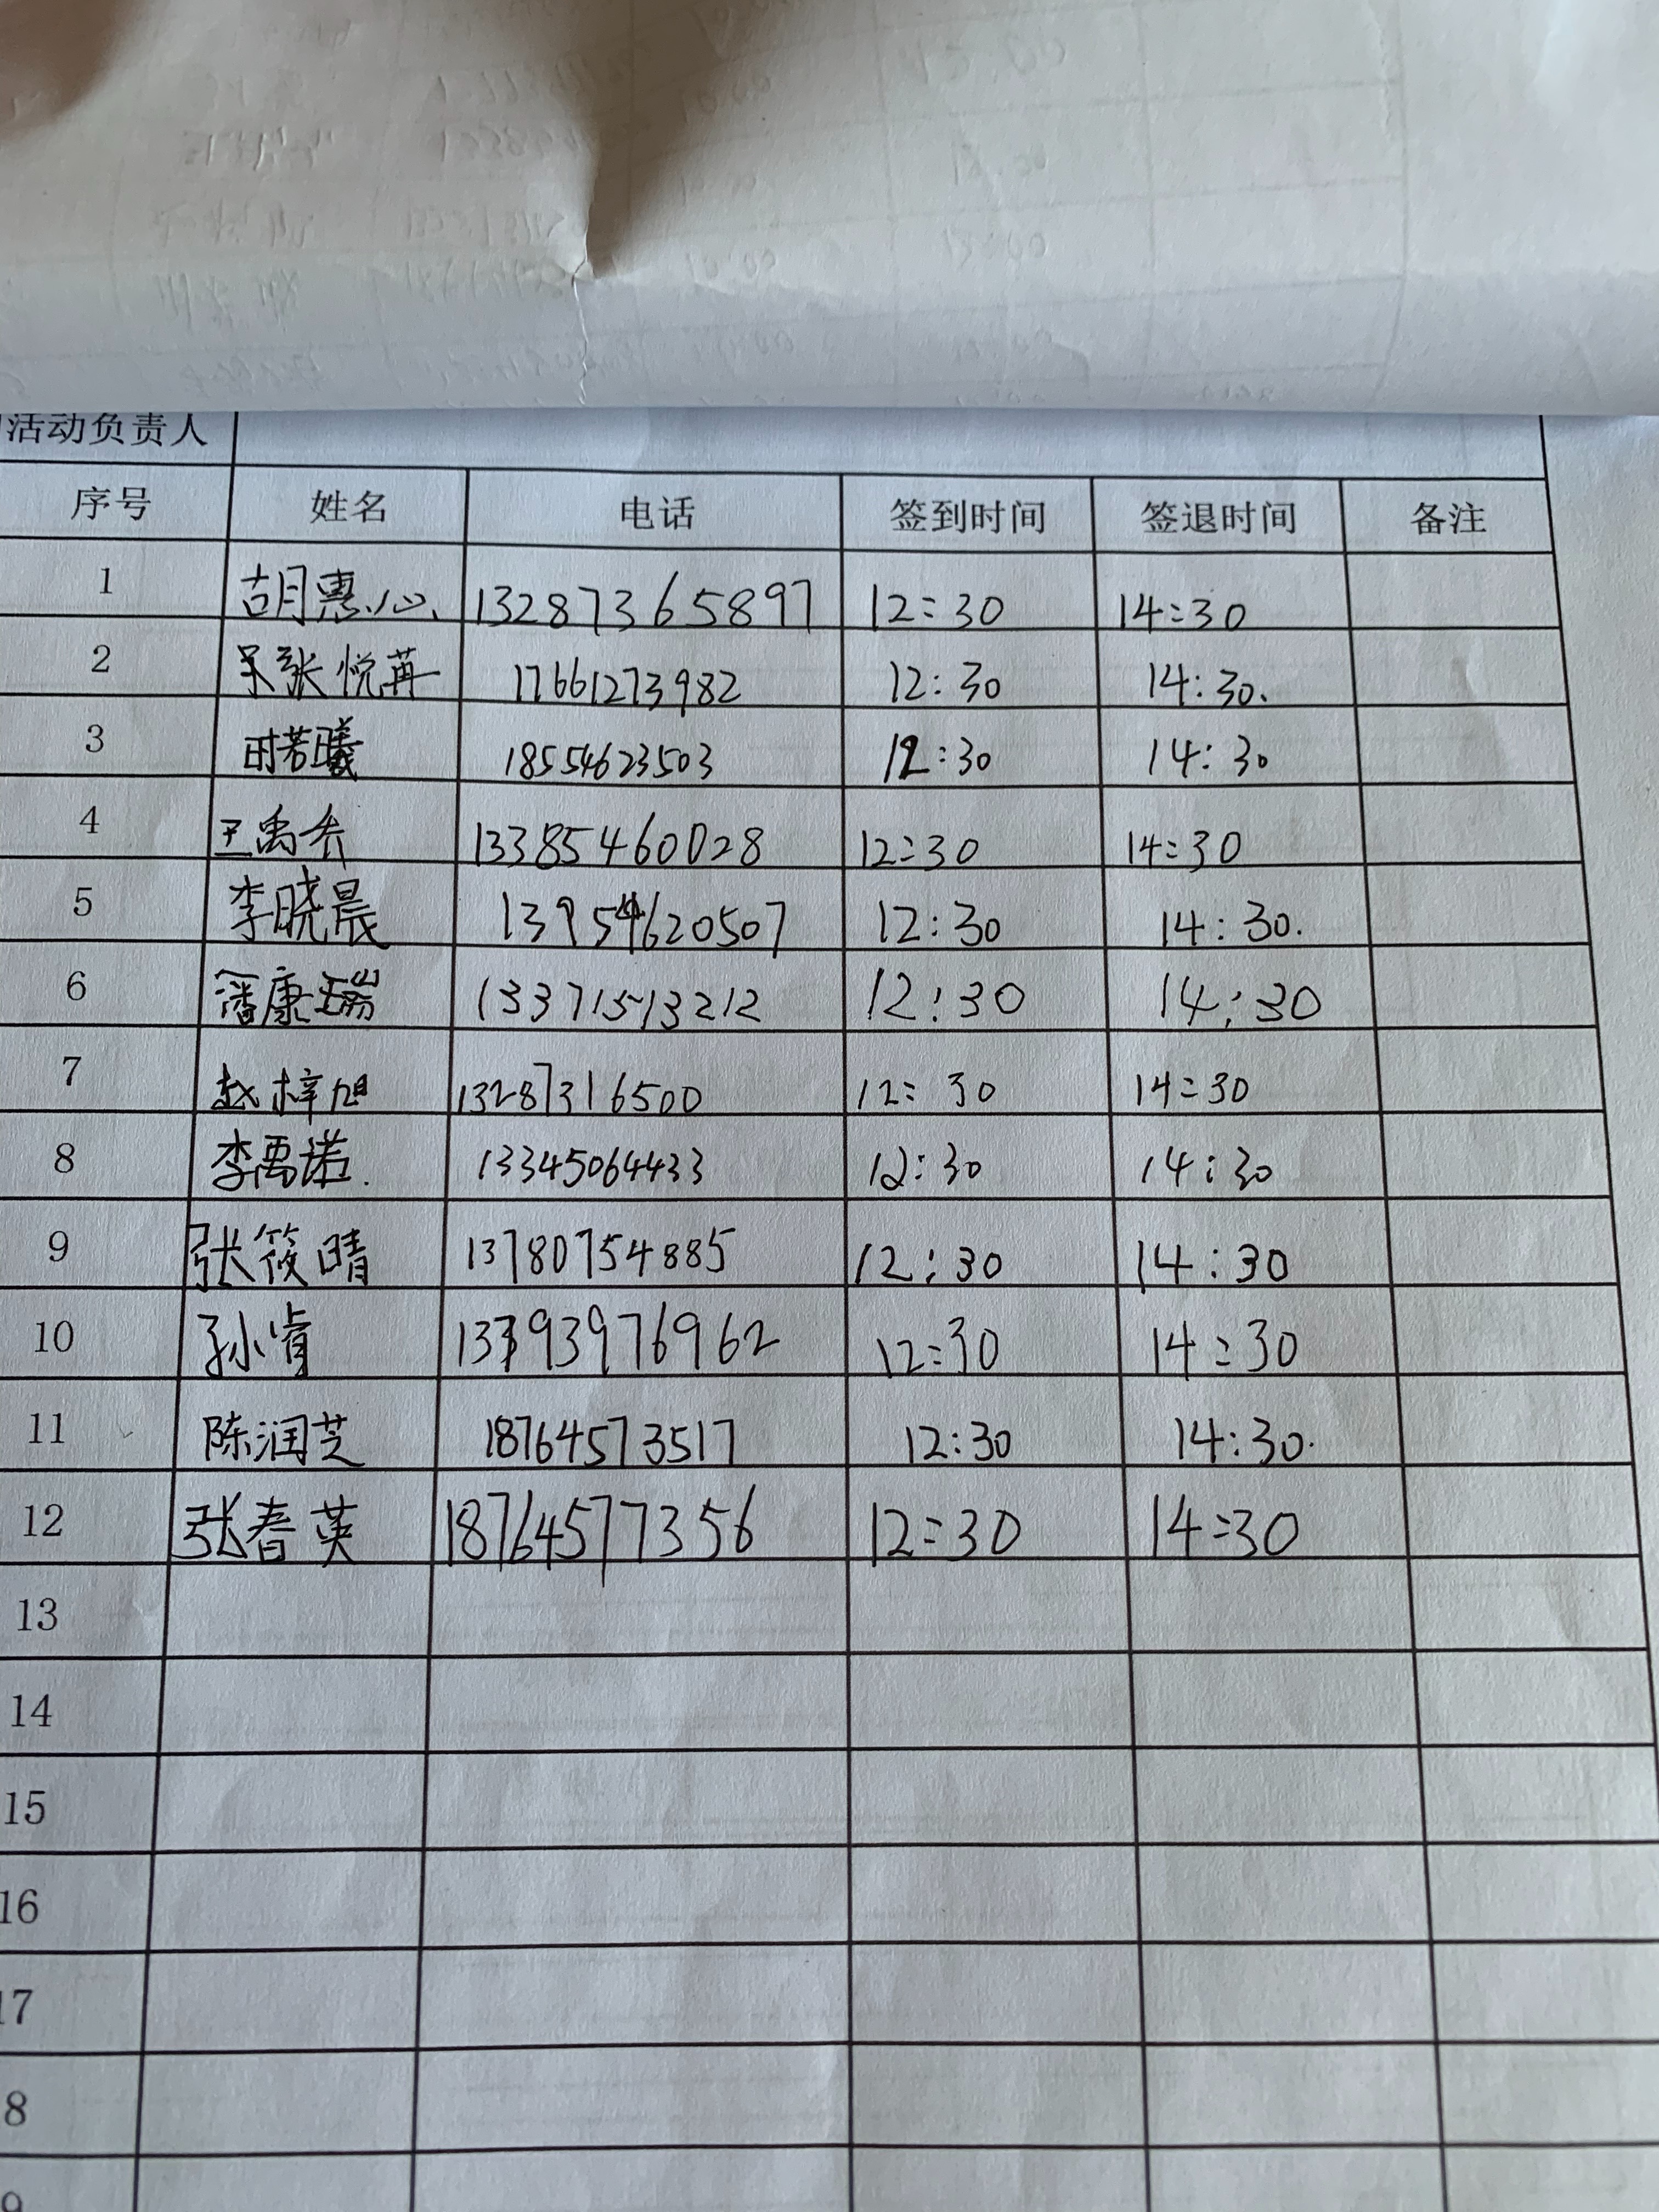 活动负责人
序号 姓名 电话 签到时间 签退时间 备注
1 胡惠心 13287365897 12:30 14:30
2 张悦苒 17661273982 12:30 14:30.
3 时若曦 18554623503 12:30 14:30
4 王禹 13385460028 12:30 14:30
5 李晓晨 13954620507 12:30 14:30.
6 潘康瑞 13371513212 12:30 14:30
7 赵梓旭 13287316500 12:30 14:30
8 李禹诺. 13345064433 12:30 14:30
9 张筱晴 13780754885 12:30 14:30
10 孙肯 13793976962 12:30 14:30
11 陈润芝 18764573517 12:30 14:30.
12 张春英 18764577356 12:30 14:30
13
14
15
16
17
8
9